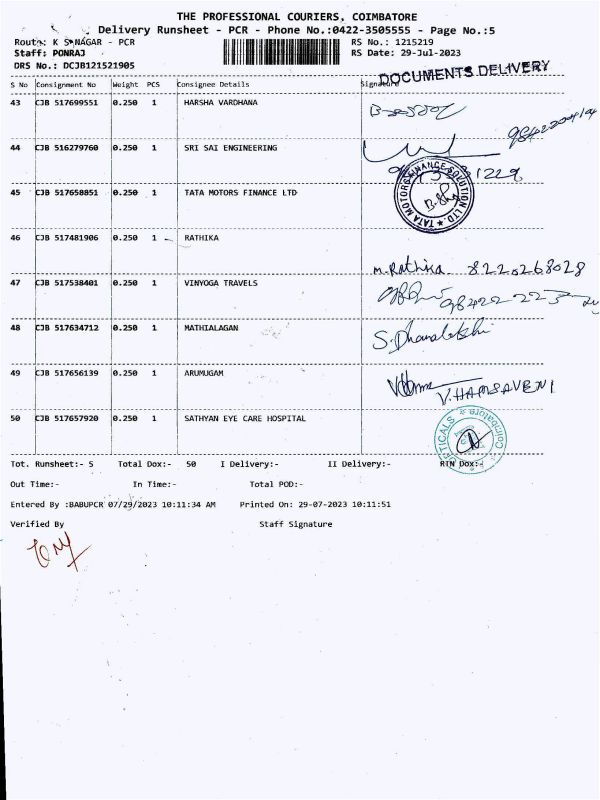 THE PROFESSIONAL COURIERS, COIMBATORE
Delivery Runsheet - PCR - Phone No.:0422-3505555 - Page No.:5
Route: K S NAGAR - PCR
RS No.: 1215219
Staff: PONRAJ
RS Date: 29-Jul-2023
DRS No.: DCJB121521905
DOCUMENTS DELIVERY
S No Consignment No Weight PCS Consignee Details Signature
43 CJB 517699551 0.250 1 HARSHA VARDHANA
44 CJB 516279760 0.250 1 SRI SAI ENGINEERING
45 CJB 517650851 0.250 1 TATA MOTORS FINANCE LTD
TATA MOTORS FINANCE SOLUTION LTD.
46 CJB 517481906 0.250 1 RATHIKA
M. Rathika 8220268028
47 CJB 517538401 0.250 1 VINYOGA TRAVELS
48 CJB 517634712 0.250 1 MATHIALAGAN
49 CJB 517656139 0.250 1 ARUMUGAM
V. HAMSAVENI
50 CJB 517657920 0.250 1 SATHYAN EYE CARE HOSPITAL
Coimbatore
Tot. Runsheet:- 5 Total Dox:- 50 I Delivery:- II Delivery:- RTN Dox:-
Out Time:- In Time:- Total POD:-
Entered By :BABUPCR 07/29/2023 10:11:34 AM Printed On: 29-07-2023 10:11:51
Verified By Staff Signature